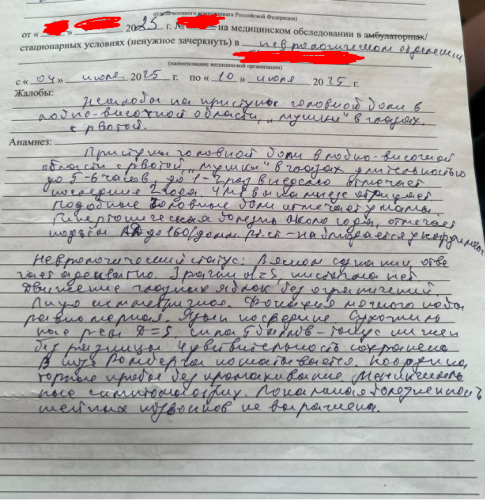 военного комиссариата Российской Федерации)
от « » 2025 г. № на медицинском обследовании в амбулаторных/
стационарных условиях (ненужное зачеркнуть) в неврологическом отделении
(наименование медицинской организации)
с « 04 » июля 2025 г. по « 10 » июля 2025 г.
Жалобы:
на приступы головной боли в
лобно-височной области, „мушки" в глазах,
с рвотой.
Анамнез:
Приступы головной боли в лобно-височной
области с рвотой, „мушки" в глазах длительностью
до 5-6 часов, до 1-2 отмечает
последние 2 года. ЧМТ
подобные головные боли отмечает у мамы.
Гипертоническая болезнь около года, отмечает
подъём АД до 160/ рт.ст - наблюдается у
Неврологический статус: В ясном сознании, отве
чает адекватно. Зрачки D=S, нистагма нет
Движение глазных яблок без ограничений
Лицо симметричное. Фонация мягкого нёба
равномерная. Язык посредине. Сухожиль
ные р-сы D=S, сила 5 баллов - тонус мышц
без разницы. Чувствительность сохранена
В позе Ромберга пошатывается. Координа
торные пробы без промахивания. Менингеаль
ные симптомы отриц. Локальная болезненность
шейных позвонков не выражена.